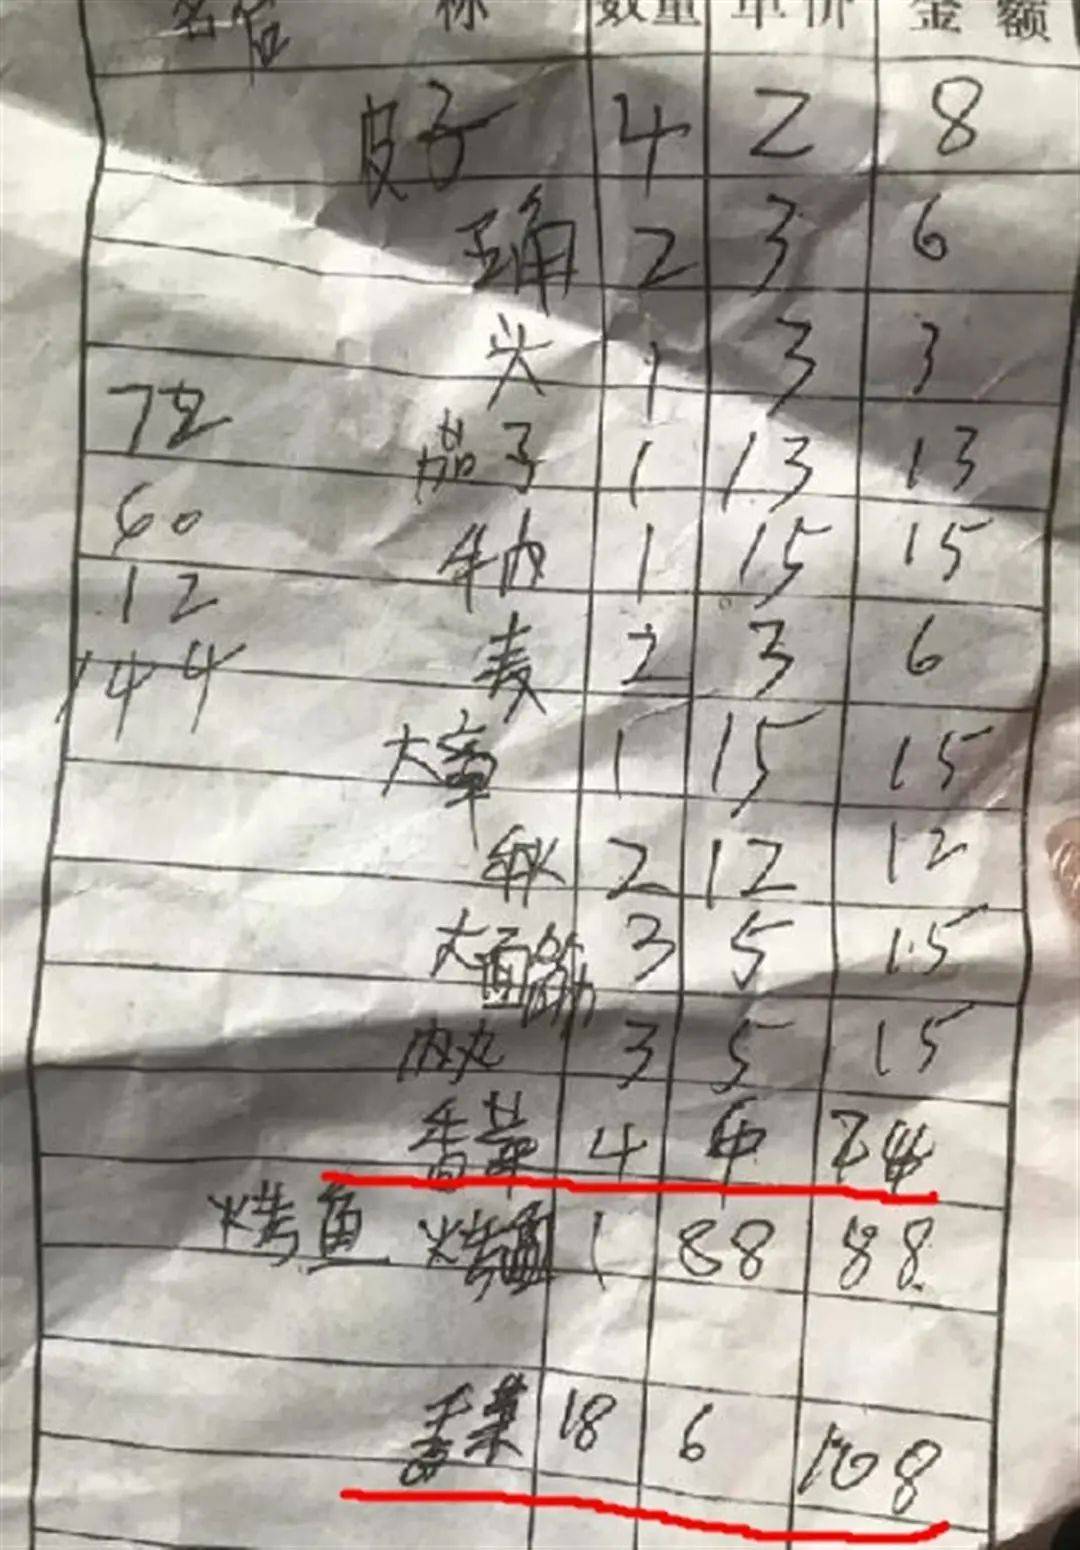 名 称 数量 单价 金额
皮子 4 2 8
2 3 6
头 1 3 3
72
茄子 1 13 13
60
牛肉 1 15 15
12
麦 2 3 6
144
大 1 15 15
2 12 12
大面筋 3 5 15
肉丸 3 5 15
香菜 4 24
烤鱼 烤鱼 1 88 88
香菜 18 6 108